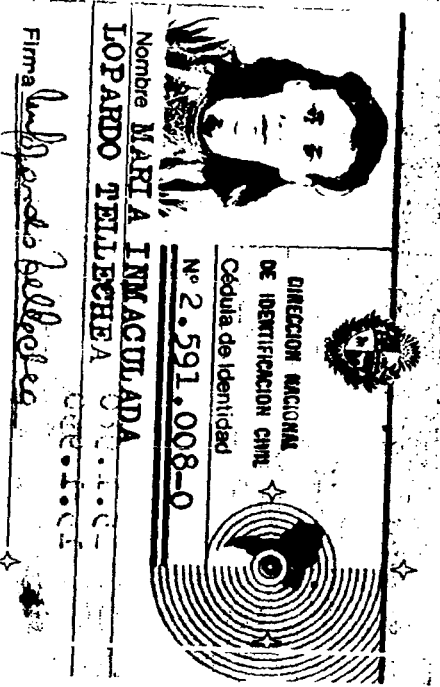 DIRECCION NACIONAL
DE IDENTIFICACION CIVIL
Cédula de Identidad
Nº 2.591.008-0
Nombre MARIA INMACULADA
LOPARDO TELLECHEA
Firma